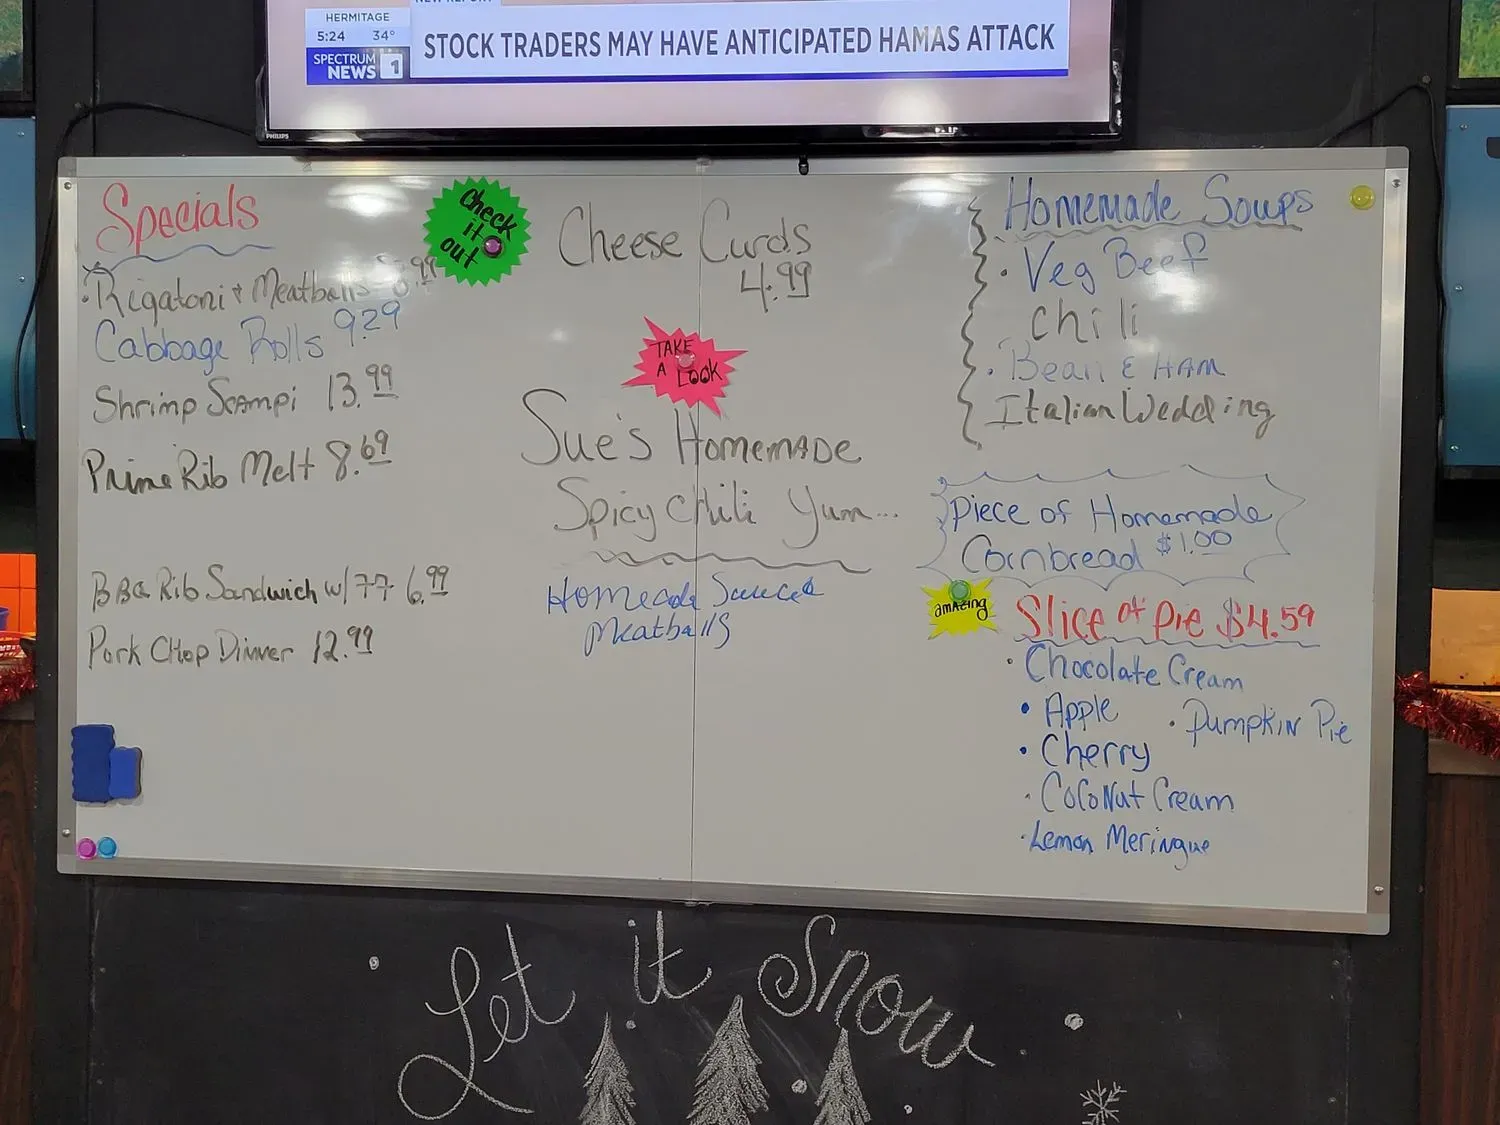 NEW REPORT
HERMITAGE
5:24 34°
SPECTRUM
NEWS 1
STOCK TRADERS MAY HAVE ANTICIPATED HAMAS ATTACK
PHILIPS
Specials
· Rigatoni & Meatballs 8.99
Cabbage Rolls 9.29
Shrimp Scampi 13.99
Prime Rib Melt 8.69
BBQ Rib Sandwich w/ FF 6.99
Pork Chop Dinner 12.99
Check
it
out
Cheese Curds
4.99
TAKE
A LOOK
Sue's Homemade
Spicy Chili Yum...
Homeade Sauce &
Meatballs
Homemade Soups
· Veg Beef
Chili
· Bean & HAM
Italian Wedding
Piece of Homemade
Cornbread $1.00
amazing
Slice of Pie $4.59
· Chocolate Cream
· Apple
· Pumpkin Pie
· Cherry
· CocoNut Cream
· Lemon Meringue
Let it Snow